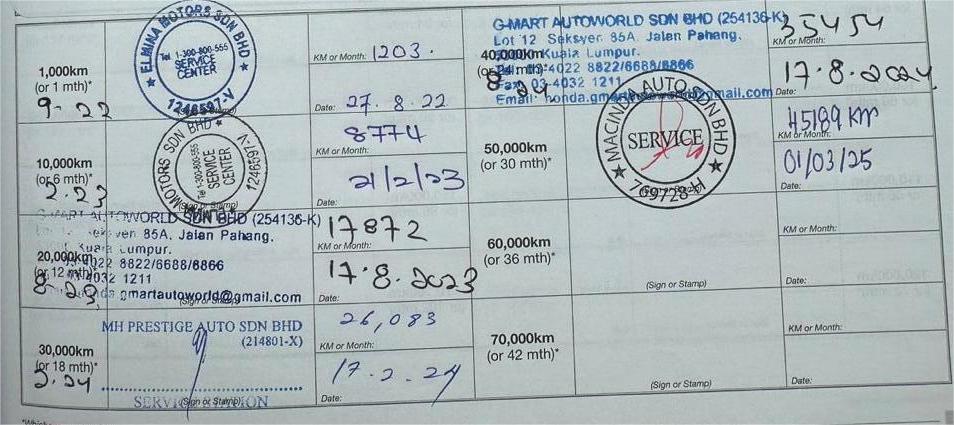 1,000km
(or 1 mth)*
9-22
ELMINA MOTORS SDN BHD
Tel 1-300-800-555
SERVICE
CENTER
1246597-V
KM or Month: 1203.
Date: 27.8.22
10,000km
(or 6 mth)*
2.23
MOTORS SDN BHD
Tel 1-300-800-555
SERVICE
CENTER
1246597-V
(Sign or Stamp)
8774
KM or Month:
21/2/23
Date:
20,000km
(or 12 mth)*
8-23
G-MART AUTOWORLD SDN BHD (254136-K)
85A, Jalan Pahang,
Kuala Lumpur.
8822/6688/8866
4032 1211
gmartautoworld@gmail.com
(Sign or Stamp)
17872
KM or Month:
17.8.2023
Date:
30,000km
(or 18 mth)*
2.24
MH PRESTIGE AUTO SDN BHD
(214801-X)
SERVICE STATION
(Sign or Stamp)
26,083
KM or Month:
17.2.24
Date:
40,000km
(or 24 mth)*
8-24
G-MART AUTOWORLD SDN BHD (254136-K)
Lot 12 Seksyen 85A, Jalan Pahang,
Kuala Lumpur.
03-4022 8822/6688/8866
Fax: 03-4032 1211
Email: honda.gmartautoworld@gmail.com
35454
KM or Month:
17.8.2024
50,000km
(or 30 mth)*
AUTO SDN BHD
SERVICE
709728-H
(Sign or Stamp)
45189 km
KM or Month:
01/03/25
Date:
60,000km
(or 36 mth)*
(Sign or Stamp)
KM or Month:
Date:
70,000km
(or 42 mth)*
(Sign or Stamp)
KM or Month:
Date: